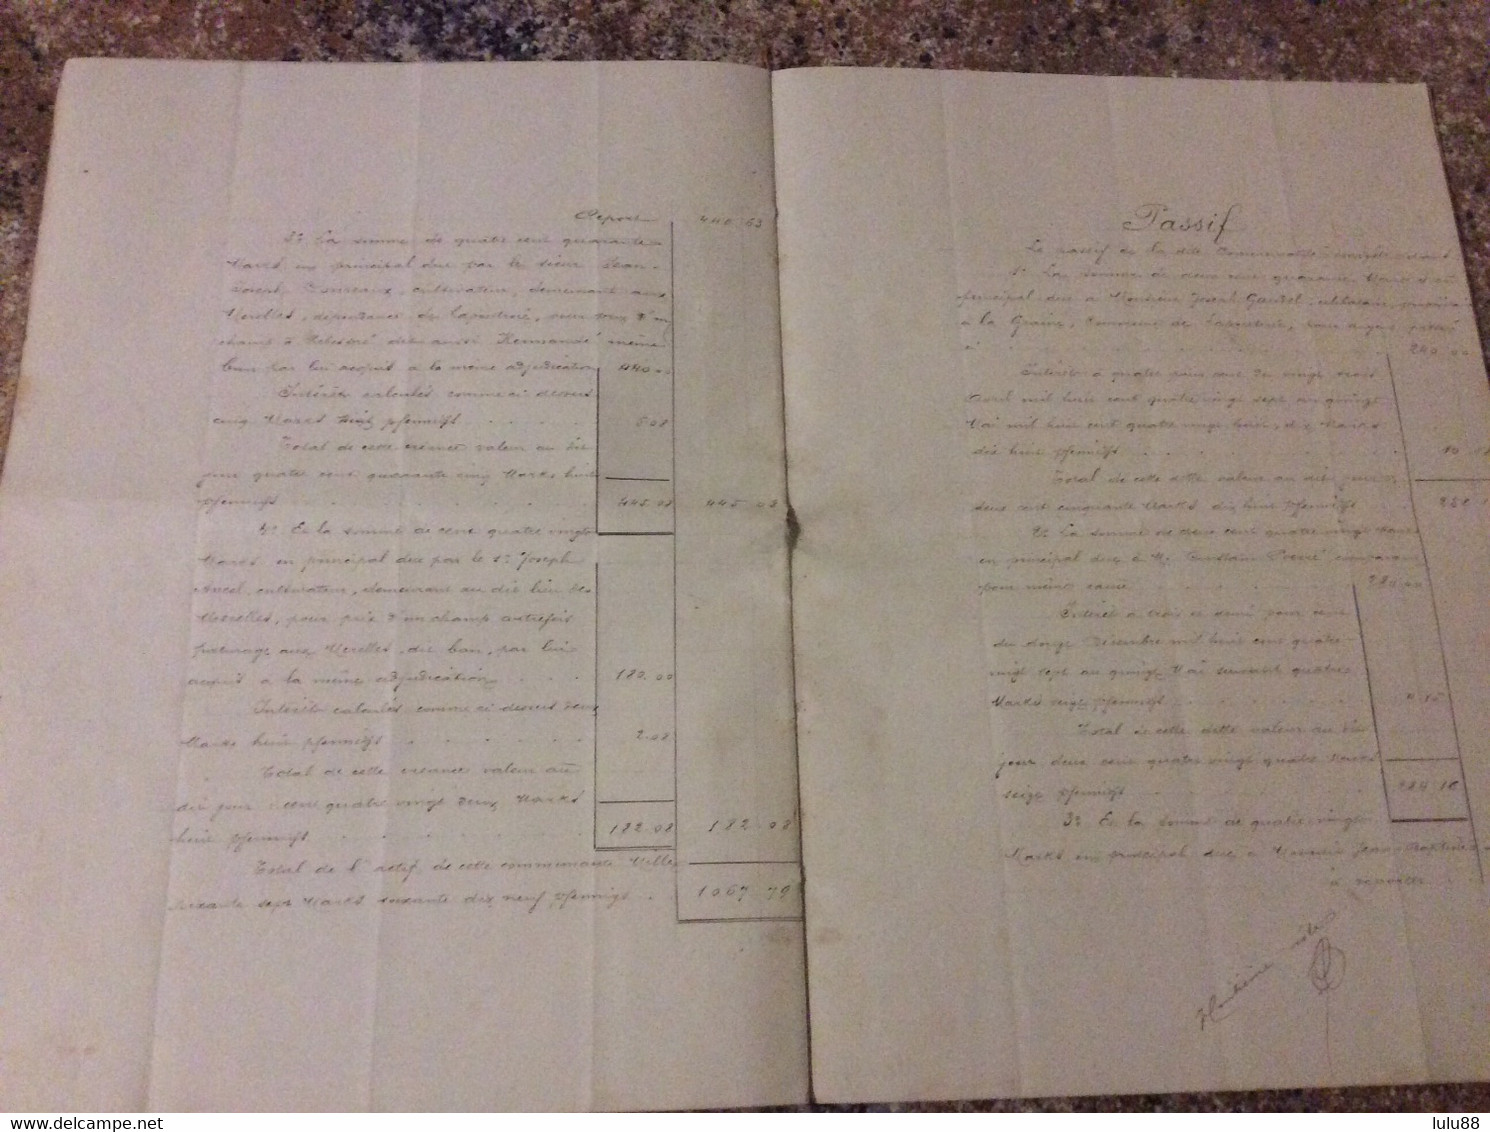 Report 440.63
3° La somme de quatre cent quarante
Marks en principal due par le sieur Jean-
Joseph, cultivateur, demeurant aux
Merelles, dépendance de Lapoutroie, pour prix d'un
champ à dit aussi même
ban par lui acquis a la même adjudication 440.00
Intérêts calculés comme ci dessus
cinq Marks huit pfennigs . . . . 5.08
Total de cette créance valeur au dit
jour quatre cent quarante cinq Marks huit
pfennigs . . . . 445.08 445.08
4° Et la somme de cent quatre vingt
Marks en principal due par le Sr Joseph
Ancel, cultivateur, demeurant au dit lieu des
Merelles, pour prix d'un champ autrefois
pâturage aux Merelles, dit ban, par lui
acquis a la même adjudication . . . 180.00
Intérêts calculés comme ci dessus deux
Marks huit pfennigs . . . . 2.08
Total de cette créance valeur au
dit jour cent quatre vingt deux Marks
huit pfennigs . . . . 182.08 182.08
Total de l'actif de cette communauté Mille
soixante sept Marks soixante dix neuf pfennigs . 1067.79
Passif
Le passif de la dite Communauté
1° La somme de deux cent quarante Marks en
principal due a Monsieur Joseph Gaudel,
à la Graine, Commune de Lapoutroie, pour argent prêté
ci . . . . 240.00
Intérêts à quatre pour cent du vingt trois
Avril mil huit cent quatre vingt sept au quinze
Mai mil huit cent quatre vingt huit, dix Marks
dix huit pfennigs . . . . 10.18
Total de cette dette valeur au dit jour
deux cent cinquante Marks dix huit pfennigs 250.
2° La somme de deux cent quatre vingt Marks
en principal due à M. comparant
pour même cause . . . . 280.00
Intérêt a trois et demi pour cent
du douze Décembre mil huit cent quatre
vingt sept au quinze Mai suivant quatre
Marks seize pfennigs . . . . 4.16
Total de cette dette valeur au dit
jour deux cent quatre vingt quatre Marks
seize pfennigs . . . . 284.16
3° Et la somme de quatre vingt
Marks en principal due a Monsieur Jean-Baptiste
à reporter
delcampe.net
lulu88